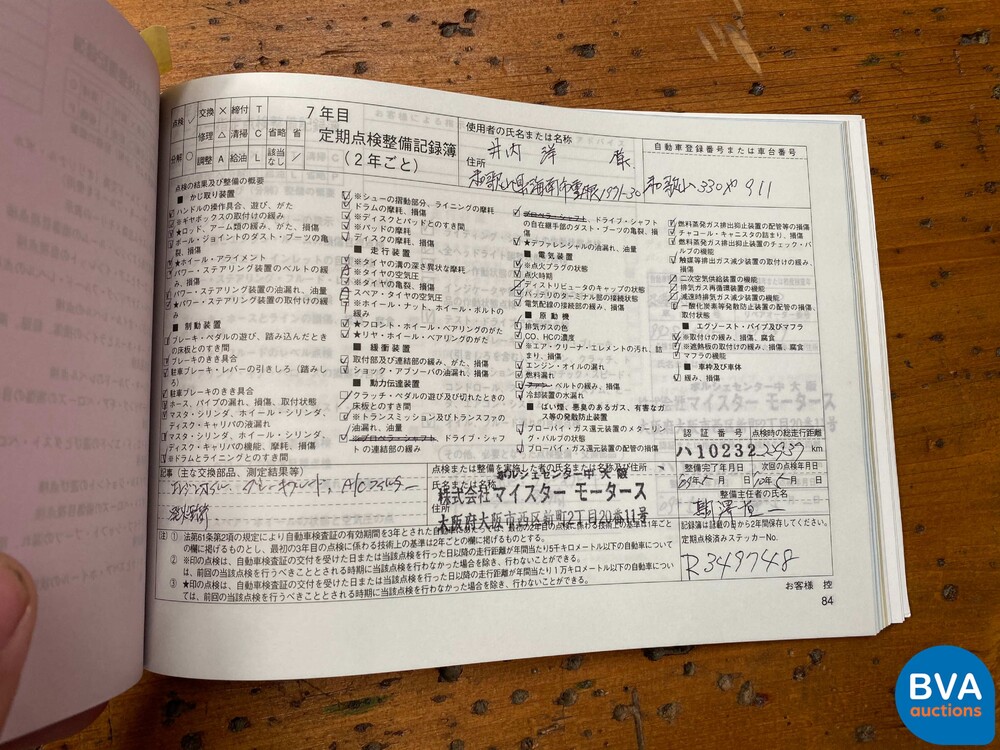 点検 ✓ 交換 × 締付 T
修理 △ 清掃 C 省略 省
分解 ○ 調整 A 給油 L 該当なし ／
7年目
定期点検整備記録簿
(2年ごと)
使用者の氏名または名称
井内 洋 様
住所
自動車登録番号または車台番号
和歌山 330 や 911
点検の結果及び整備の概要
■ かじ取り装置
ハンドルの操作具合、遊び、がた
※ギヤボックスの取付けの緩み
★ロッド、アーム類の緩み、がた、損傷
ボール・ジョイントのダスト・ブーツの亀裂、損傷
★ホイール・アライメント
パワー・ステアリング装置のベルトの緩み、損傷
パワー・ステアリング装置の油漏れ、油量
★パワー・ステアリング装置の取付けの緩み
■ 制動装置
ブレーキ・ペダルの遊び、踏み込んだときの床板とのすき間
ブレーキのきき具合
駐車ブレーキ・レバーの引きしろ(踏みしろ)
駐車ブレーキのきき具合
ホース、パイプの漏れ、損傷、取付状態
マスタ・シリンダ、ホイール・シリンダ、ディスク・キャリパの液漏れ
マスタ・シリンダ、ホイール・シリンダ、ディスク・キャリパの機能、摩耗、損傷
※ドラムとライニングとのすき間
※シューの摺動部分、ライニングの摩耗
ドラムの摩耗、損傷
※ディスクとパッドとのすき間
※パッドの摩耗
ディスクの摩耗、損傷
■ 走行装置
※タイヤの溝の深さ異状な摩耗
※タイヤの空気圧
※タイヤの亀裂、損傷
スペア・タイヤの空気圧
※ホイール・ナット、ホイール・ボルトの緩み
★フロント・ホイール・ベアリングのがた
★リヤ・ホイール・ベアリングのがた
■ 緩衝装置
取付部及び連結部の緩み、がた、損傷
ショック・アブソーバの油漏れ、損傷
■ 動力伝達装置
クラッチ・ペダルの遊び及び切れたときの床板とのすき間
※トランスミッション及びトランスファの油漏れ、油量
※プロペラ・シャフト、ドライブ・シャフトの連結部の緩み
プロペラ・シャフト、ドライブ・シャフトの自在継手部のダスト・ブーツの亀裂、損傷
★デファレンシャルの油漏れ、油量
■ 電気装置
※点火プラグの状態
点火時期
ディストリビュータのキャップの状態
バッテリのターミナル部の接続状態
電気配線の接続部の緩み、損傷
■ 原動機
排気ガスの色
CO、HCの濃度
※エア・クリーナ・エレメントの汚れ、詰まり、損傷
エンジン・オイルの漏れ
燃料漏れ
ファン・ベルトの緩み、損傷
冷却装置の水漏れ
■ ばい煙、悪臭のあるガス、有害なガス等の発散防止装置
ブローバイ・ガス還元装置のメターリング・バルブの状態
ブローバイ・ガス還元装置の配管の損傷
燃料蒸発ガス排出抑止装置の配管等の損傷
チャコール・キャニスタの詰まり、損傷
燃料蒸発ガス排出抑止装置のチェック・バルブの機能
触媒等排出ガス減少装置の取付けの緩み、損傷
二次空気供給装置の機能
排気ガス再循環装置の機能
減速時排気ガス減少装置の機能
一酸化炭素等発散防止装置の配管の損傷、取付状態
■ エグゾースト・パイプ及びマフラ
※取付けの緩み、損傷、腐食
※遮熱板の取付けの緩み、損傷、腐食
マフラの機能
■ 車枠及び車体
緩み、損傷
認証番号
ハ10232
点検時の総走行距離
km
整備完了年月日
次回の点検年月日
整備主任者の氏名
記録簿は記載の日から2年間保存してください。
定期点検済みステッカーNo.
R3497748
記事(主な交換部品、測定結果等)
点検または整備を実施した者の氏名または名称及び住所
氏名または名称
住所
ポルシェセンター中大阪
株式会社マイスターモータース
大阪府大阪市西区新町2丁目20番11号
(注) ① 法第61条第2項の規定により自動車検査証の有効期間を3年とされた自動車にあっては、最初の2年目の点検に係わる技術上の基準は1年ごとの欄に掲げるものとし、最初の3年目の点検に係わる技術上の基準は2年ごとの欄に掲げるものとする。
② ※印の点検は、自動車検査証の交付を受けた日または当該点検を行った日以降の走行距離が年間当たり5千キロメートル以下の自動車については、前回の当該点検を行うべきこととされる時期に当該点検を行わなかった場合を除き、行わないことができる。
③ ★印の点検は、自動車検査証の交付を受けた日または当該点検を行った日以降の走行距離が年間当たり1万キロメートル以下の自動車については、前回の当該点検を行うべきこととされる時期に当該点検を行わなかった場合を除き、行わないことができる。
お客様 控
84
BVA
auctions